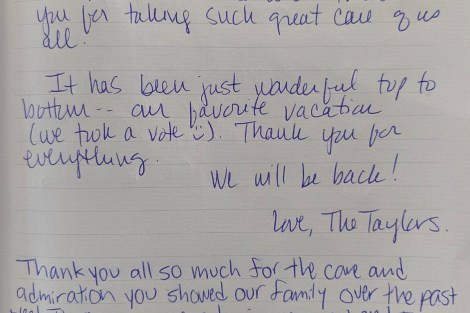 you for taking such great care of us
all.
It has been just wonderful top to
bottom -- our favorite vacation
(we took a vote :)). Thank you for
everything.
We will be back!
Love, The Taylors.
Thank you all so much for the care and
admiration you showed our family over the past